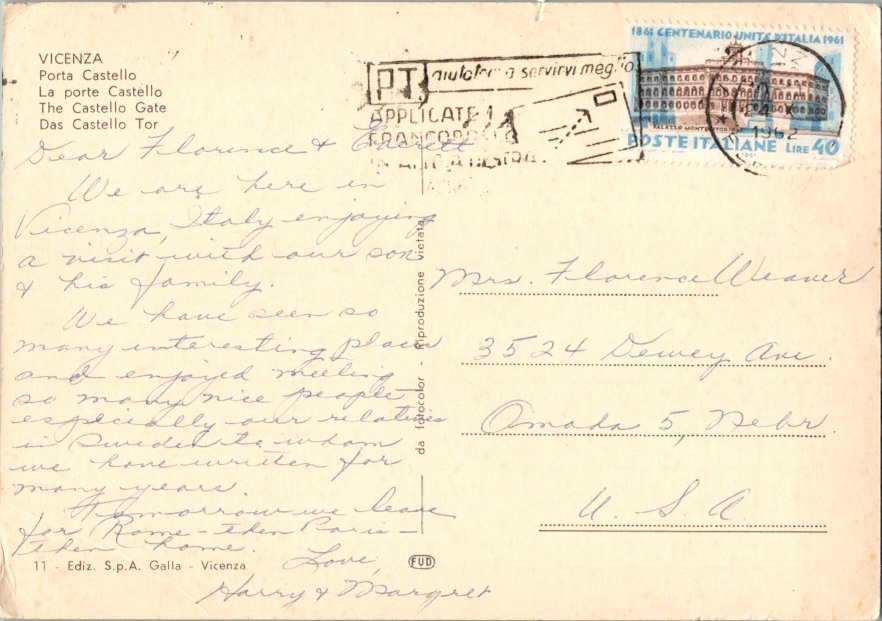 VICENZA
Porta Castello
La porte Castello
The Castello Gate
Das Castello Tor
PT aiutateci a servirvi meglio
APPLICATE
1861 CENTENARIO UNITÀ D'ITALIA 1961
PALAZZO MONTECITORIO
POSTE ITALIANE LIRE 40
1962
Dear Florence &
We are here in
Vicenza, Italy enjoying
a visit with our son
& his family.
We have seen so
many interesting places
and enjoyed meeting
so many nice people
especially our relatives
in Sweden to whom
we have written for
many years.
Tomorrow we leave
for Rome - then Paris -
then home.
Love,
Harry & Margret
Mrs. Florence Weaver
3524 Dewey Ave.
Omaha 5, Nebr.
U. S. A.
da fotocolor - Riproduzione vietata
11 - Ediz. S.p.A. Galla - Vicenza
FUD